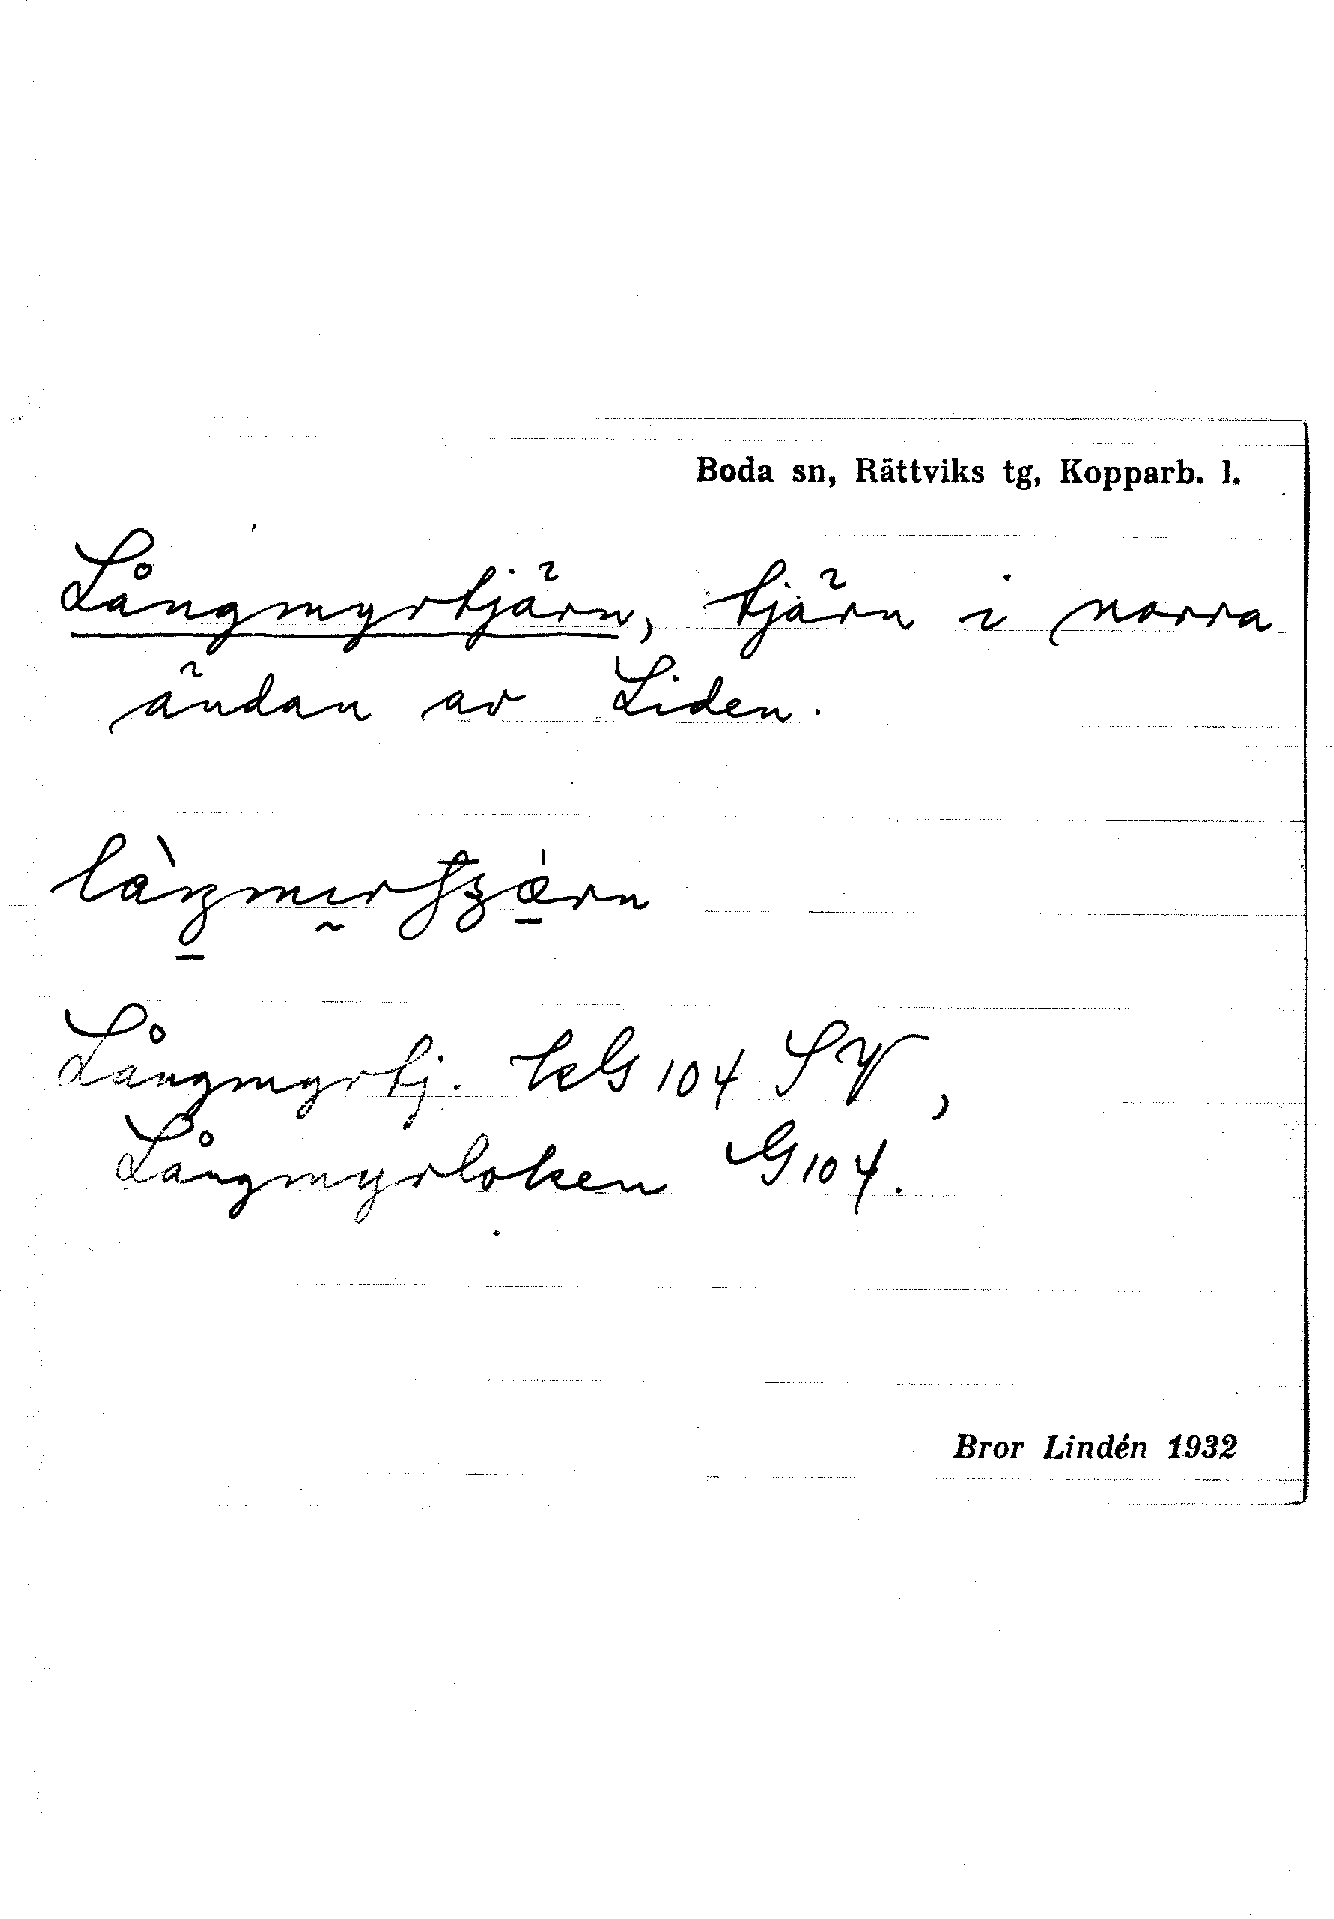 Boda sn, Rättviks tg, Kopparb. l.
Långmyrtjärn, tjärn i norra
ändan av Liden.
Långmyrtj. kG 104 SV,
Långmyrloken G 104.
Bror Lindén 1932